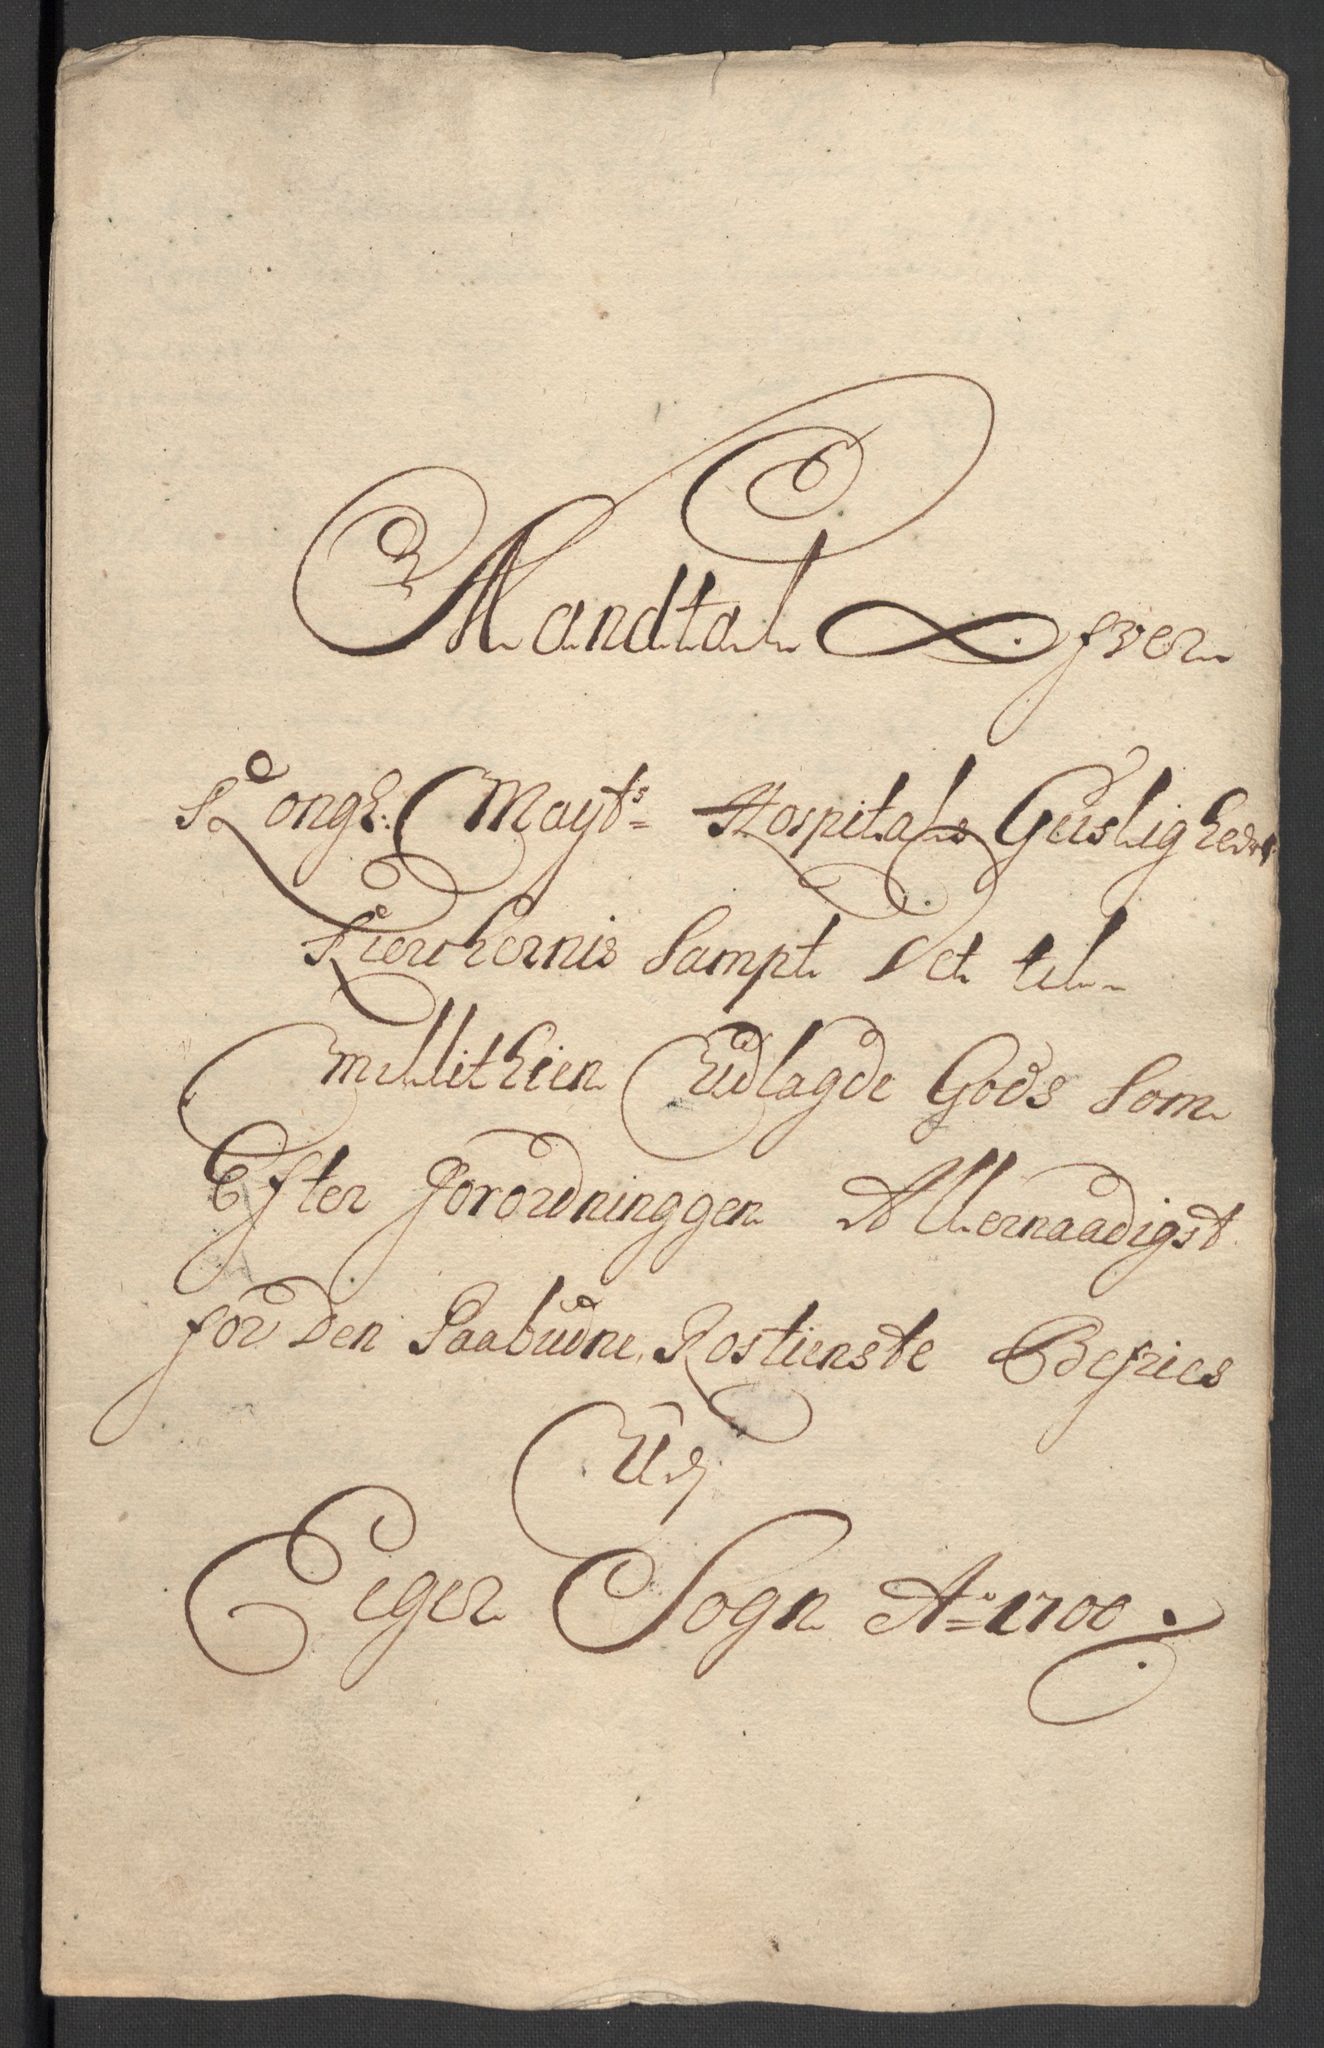 Mandtal Ofver
Kongl: Mayts Hospitals Geisligheds
Kierchernis Sampt det til
Millithien Udlagde Gods Som
Efter forordninggen Allernaadigst
for den Paabudne Rostienste Befries
Udj
Eger Sogn Ao 1700